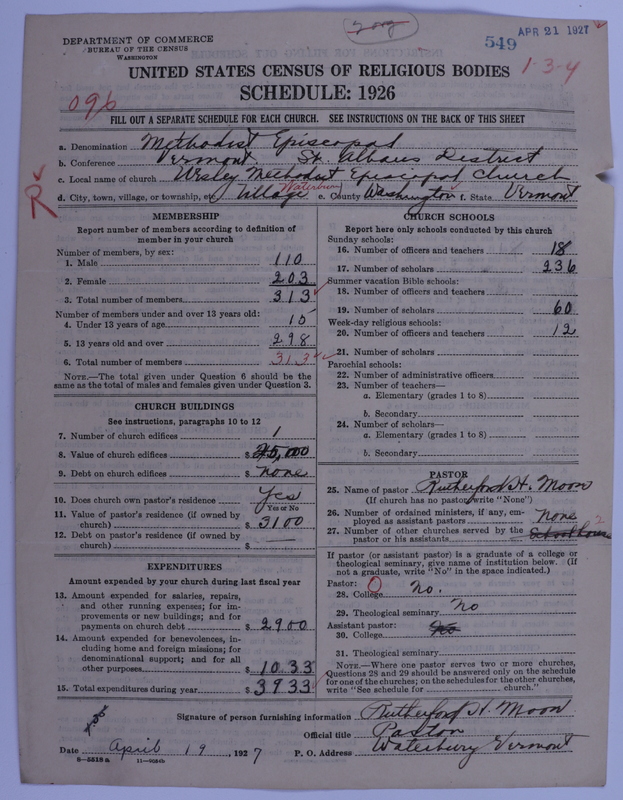 DEPARTMENT OF COMMERCE
BUREAU OF THE CENSUS
WASHINGTON
549
APR 21 1927
1-3-4
UNITED STATES CENSUS OF RELIGIOUS BODIES
SCHEDULE: 1926
096
FILL OUT A SEPARATE SCHEDULE FOR EACH CHURCH. SEE INSTRUCTIONS ON THE BACK OF THIS SHEET
a. Denomination Methodist Episcopal
b. Conference Vermont. St. Albans District
c. Local name of church Wesley Methodist Episcopal Church
R
d. City, town, village, or township, etc. Village Waterbury e. County Washington f. State Vermont
MEMBERSHIP
Report number of members according to definition of
member in your church
Number of members, by sex:
1. Male 110
2. Female 203
3. Total number of members 313
Number of members under and over 13 years old:
4. Under 13 years of age 15
5. 13 years old and over 298
6. Total number of members 313
NOTE.—The total given under Question 6 should be the
same as the total of males and females given under Question 3.
CHURCH BUILDINGS
See instructions, paragraphs 10 to 12
7. Number of church edifices 1
8. Value of church edifices $ 25,000
9. Debt on church edifices $ none
10. Does church own pastor's residence yes
Yes or No
11. Value of pastor's residence (if owned by
church) $ 3100
12. Debt on pastor's residence (if owned by
church) $ —
EXPENDITURES
Amount expended by your church during last fiscal year
13. Amount expended for salaries, repairs,
and other running expenses; for im-
provements or new buildings; and for
payments on church debt $ 2900
14. Amount expended for benevolences, in-
cluding home and foreign missions; for
denominational support; and for all
other purposes $ 1033
15. Total expenditures during year $ 3933
CHURCH SCHOOLS
Report here only schools conducted by this church
Sunday schools:
16. Number of officers and teachers 18
17. Number of scholars 236
Summer vacation Bible schools:
18. Number of officers and teachers
19. Number of scholars 60
Week-day religious schools:
20. Number of officers and teachers 12
21. Number of scholars
Parochial schools:
22. Number of administrative officers
23. Number of teachers—
a. Elementary (grades 1 to 8)
b. Secondary
24. Number of scholars—
a. Elementary (grades 1 to 8)
b. Secondary
PASTOR
25. Name of pastor Rutherford H. Moon
(If church has no pastor, write "None")
26. Number of ordained ministers, if any, em-
ployed as assistant pastors None
27. Number of other churches served by the
pastor or his assistants Schoolhouse 2
If pastor (or assistant pastor) is a graduate of a college or
theological seminary, give name of institution below. (If
not a graduate, write "No" in the space indicated.)
Pastor: 0
28. College No.
29. Theological seminary No
Assistant pastor:
30. College
31. Theological seminary
NOTE.—Where one pastor serves two or more churches,
Questions 28 and 29 should be answered only on the schedule
for one of the churches; on the schedules for the other churches,
write "See schedule for church."
Signature of person furnishing information Rutherford H. Moon
Official title Pastor
Date April 19, 1927 P. O. Address Waterbury Vermont
8—5518 a